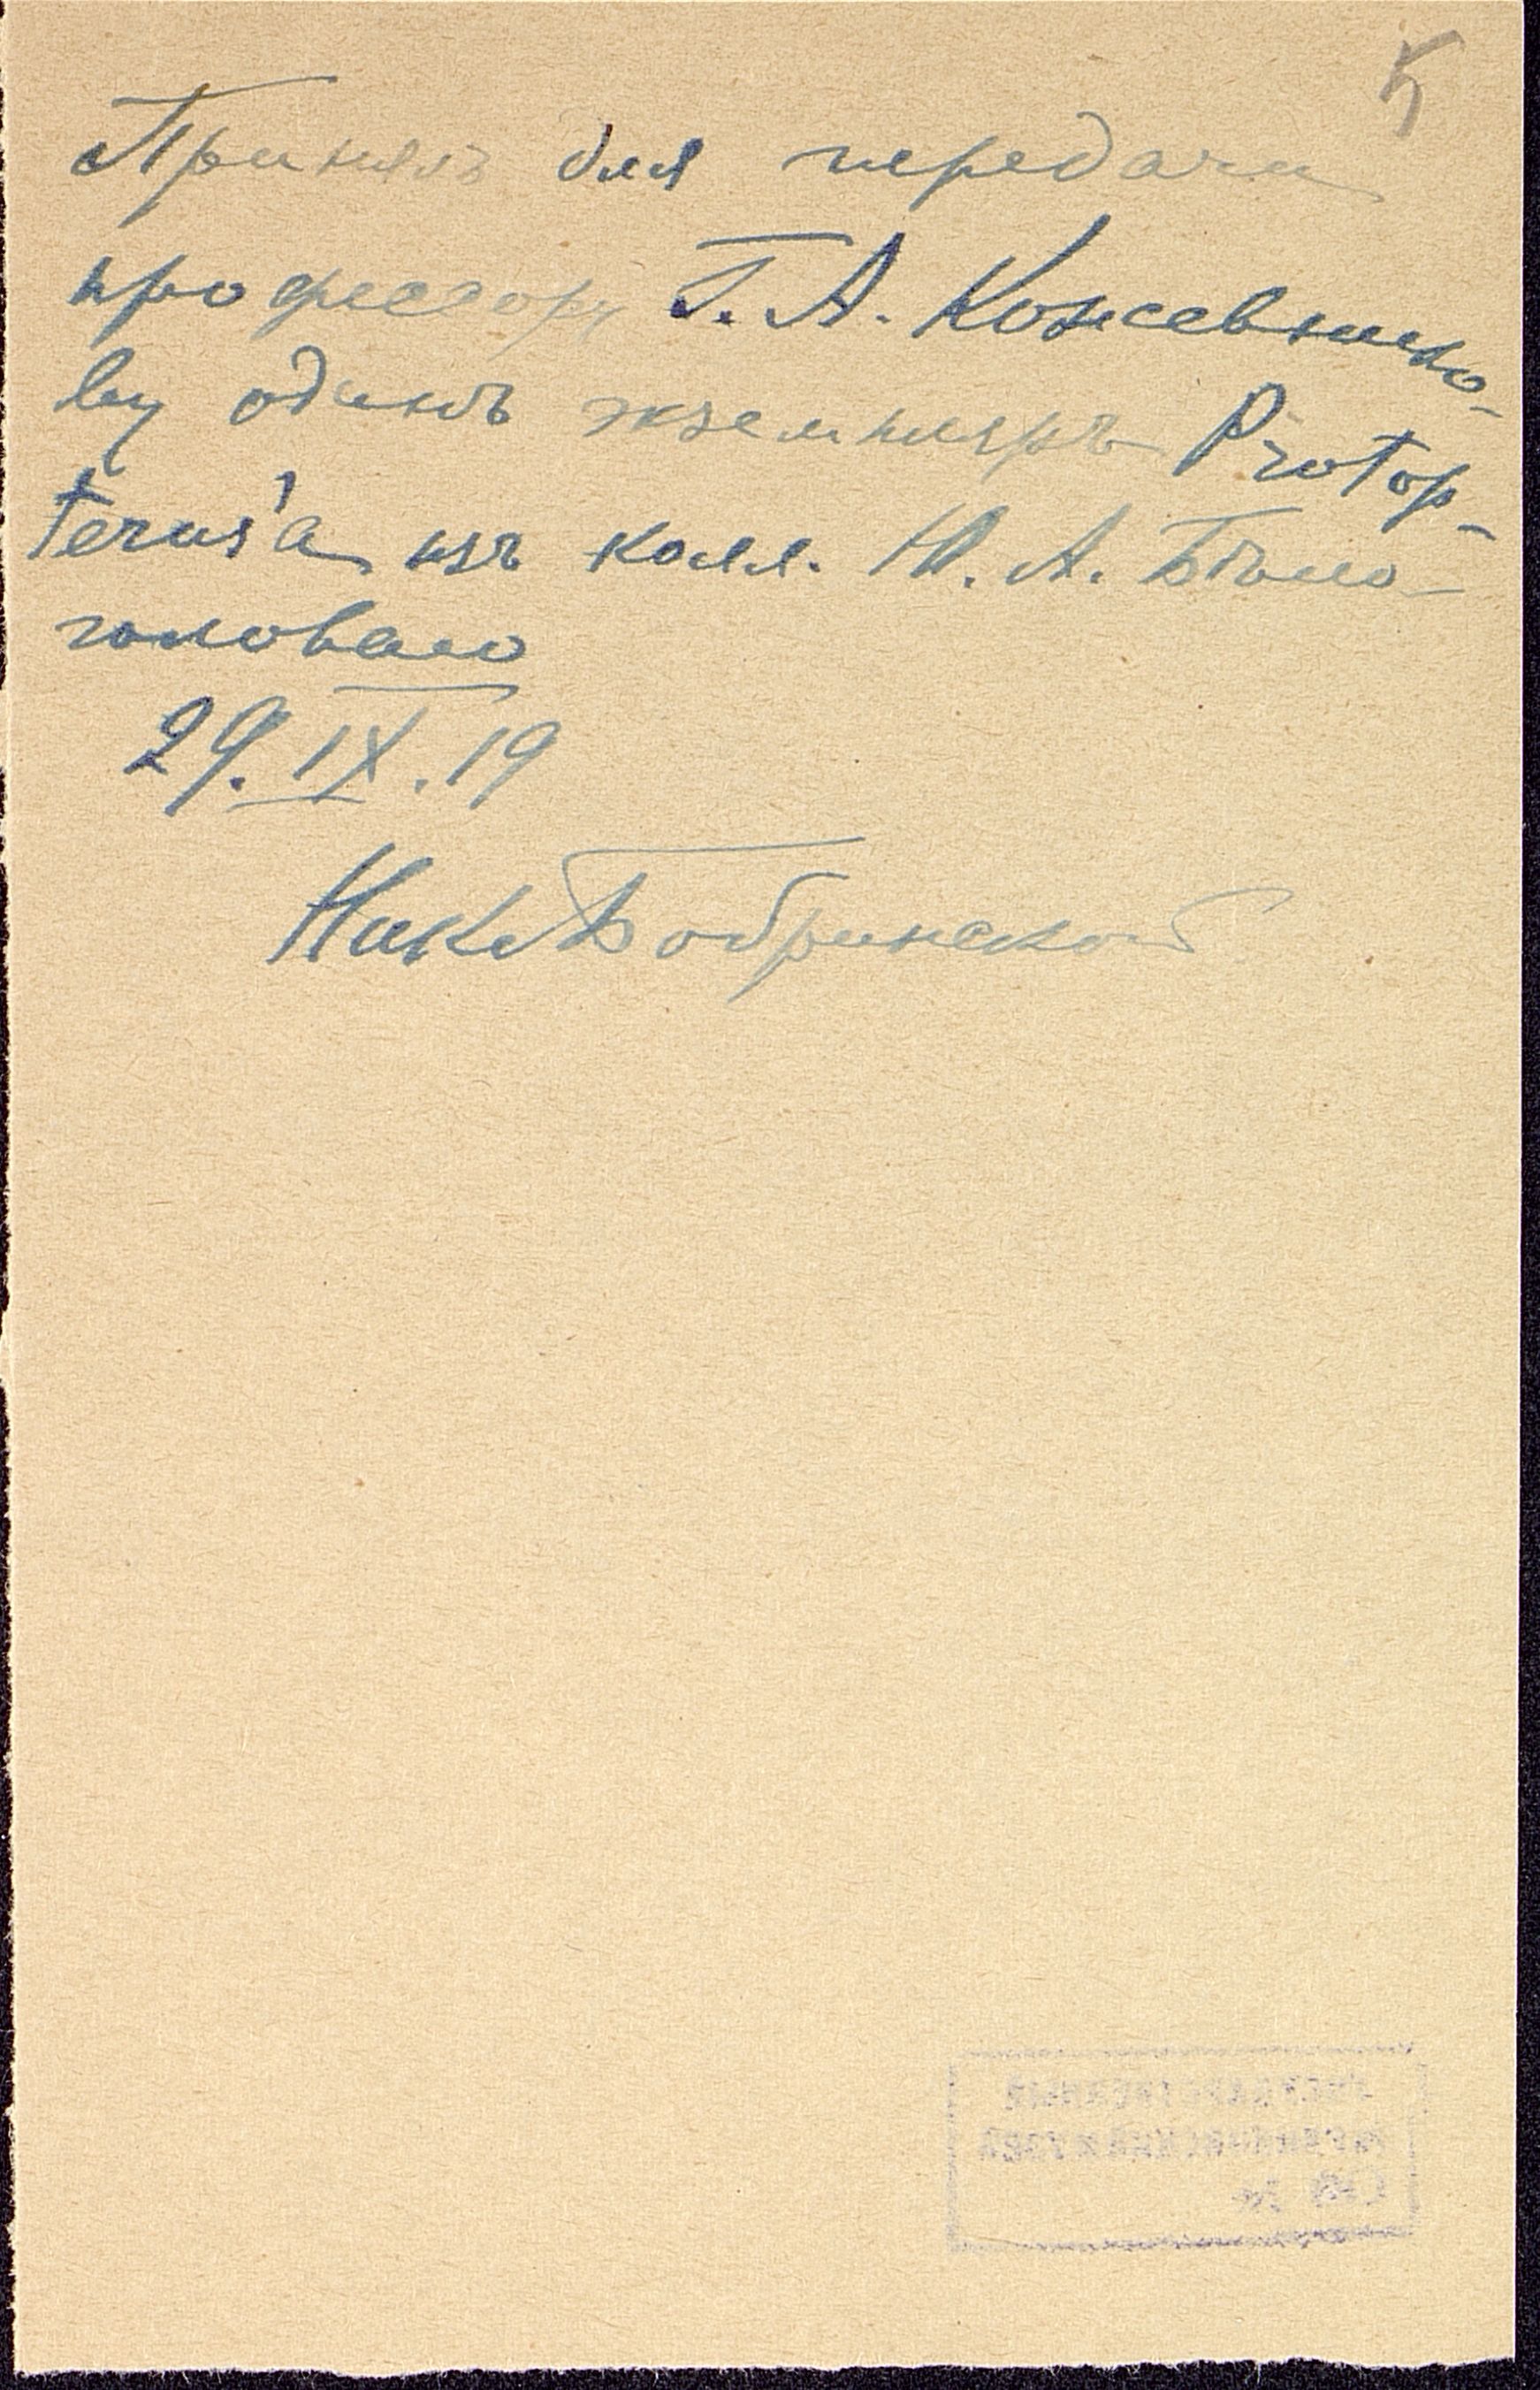 5
Принялъ для передачи
профессору Г. А. Кожевнико-
ву одинъ экземпляръ Protop-
terus'a изъ колл. Ю. А. Бѣло-
головаго
29. IX. 19
Ник Бобринской